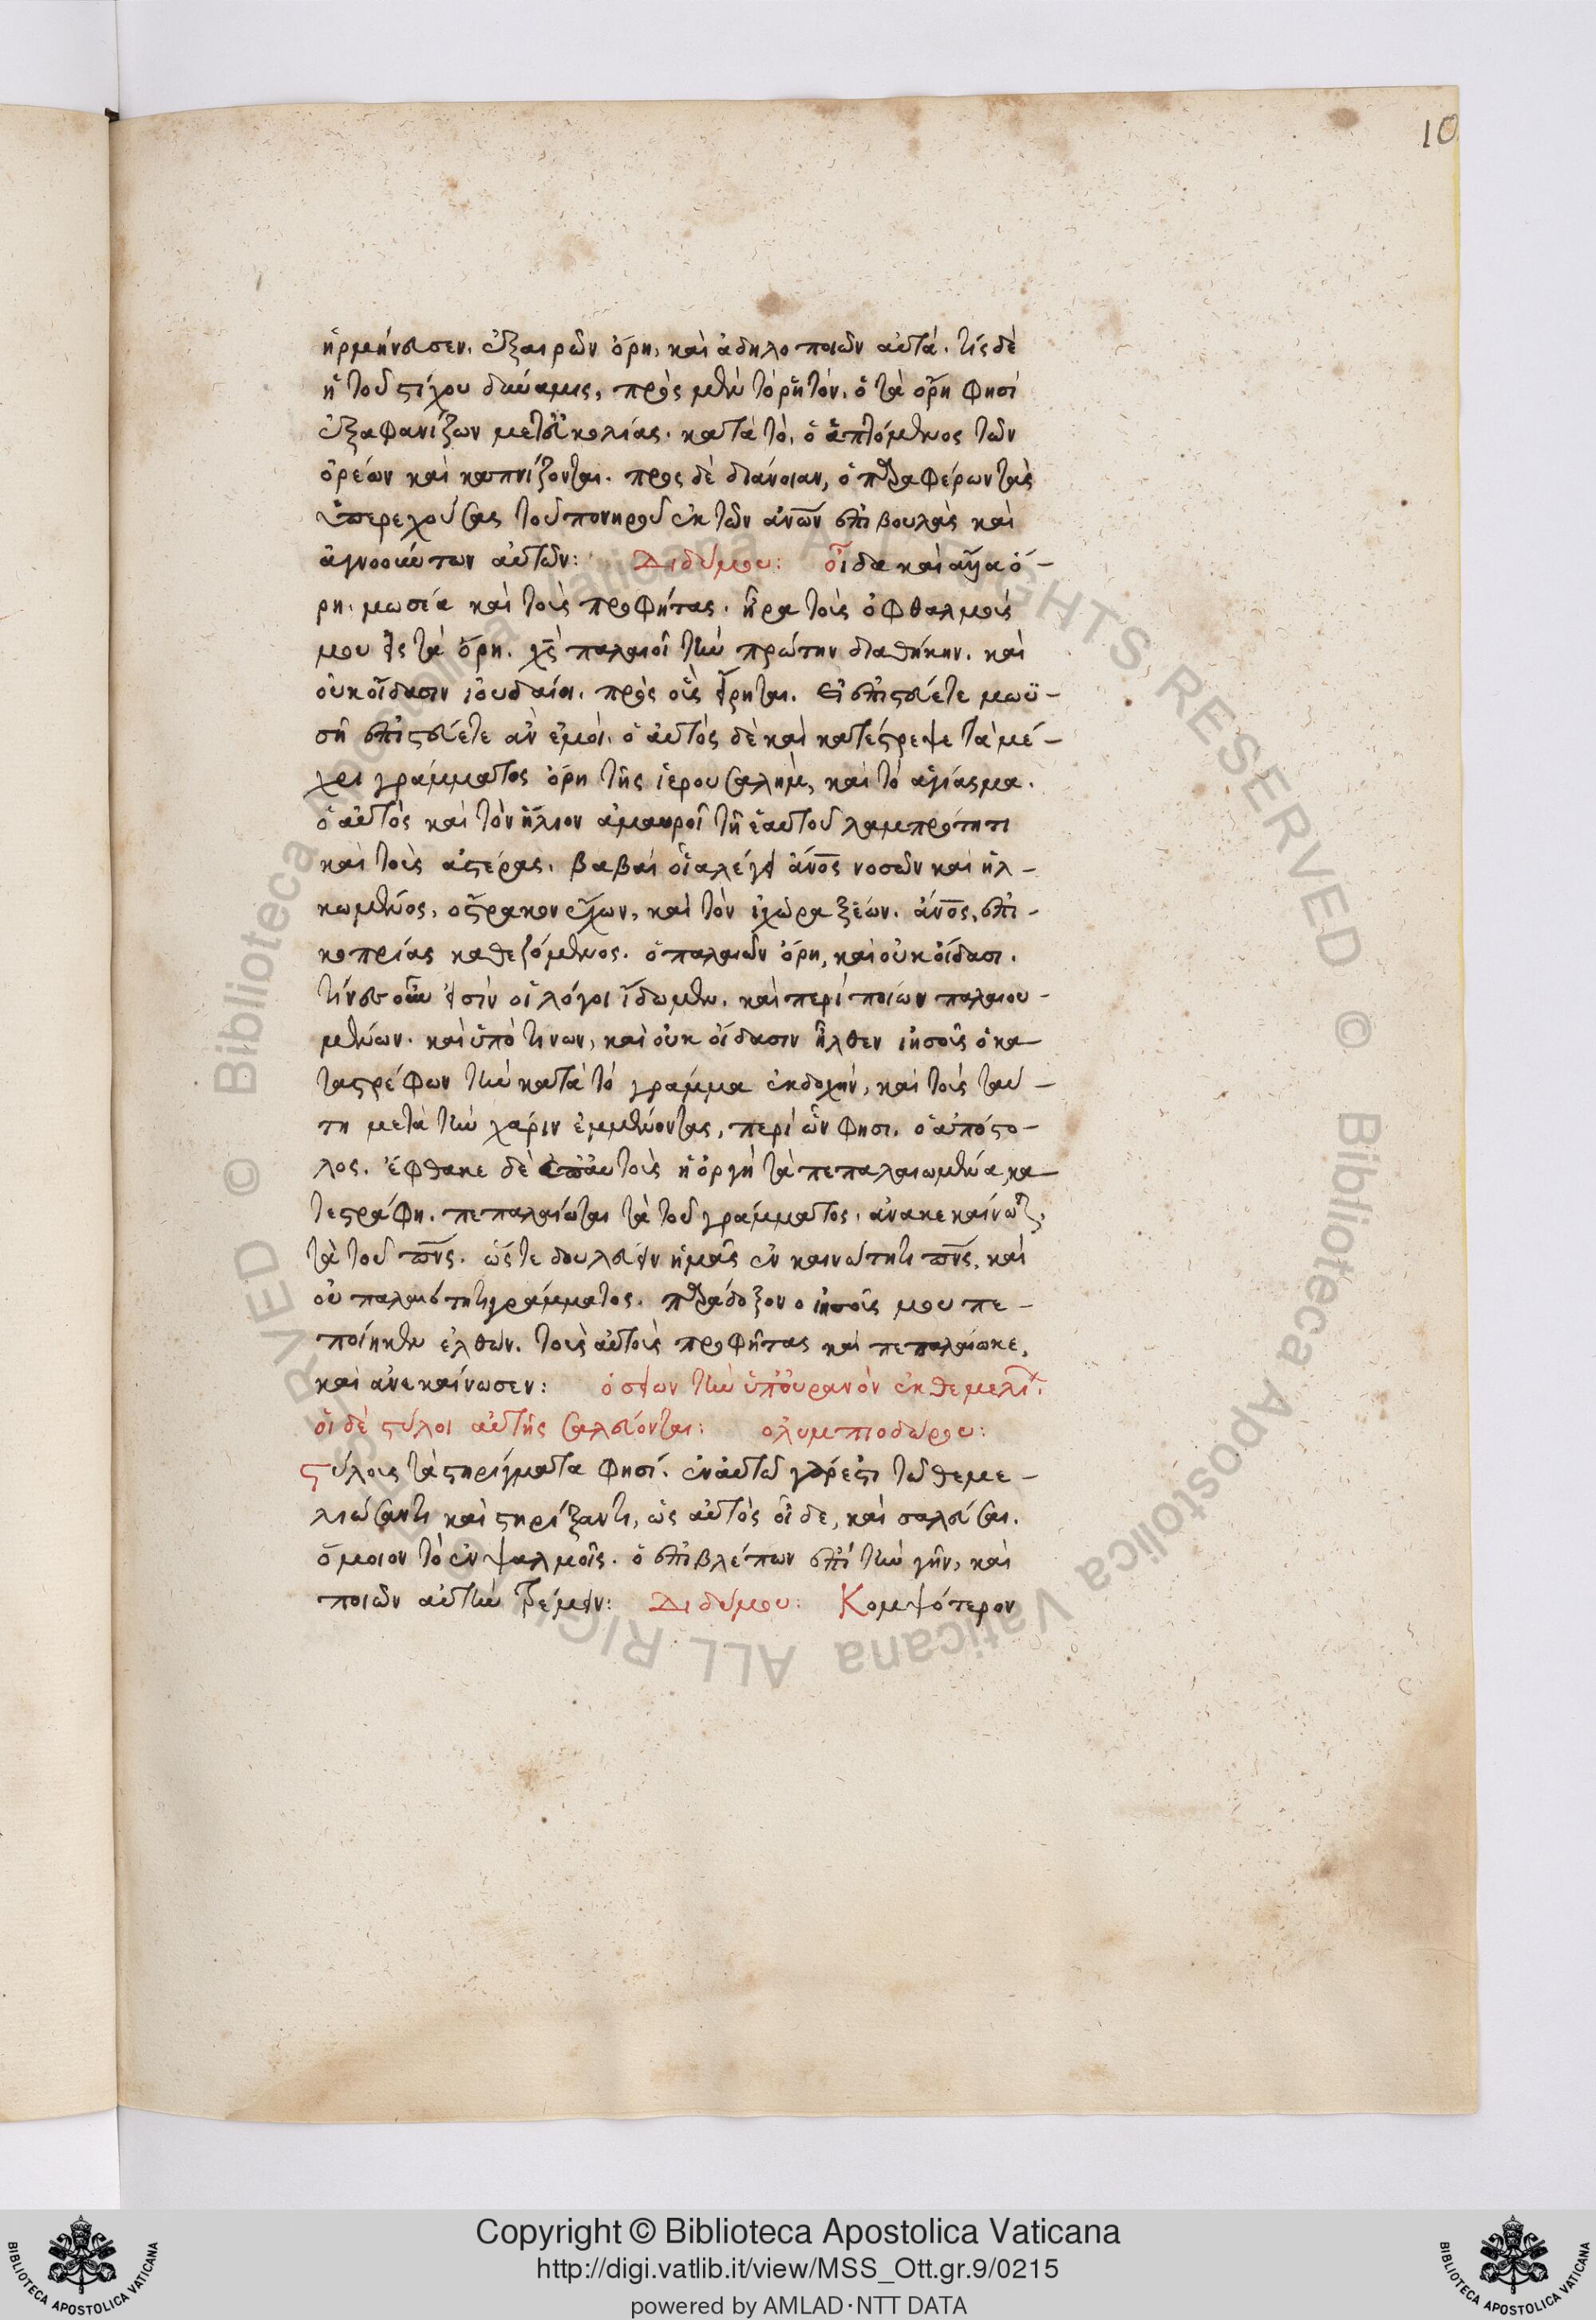 10
ἡρμήνευσεν. ἐξαιρῶν ὄρη, καὶ ἀδηλοποιῶν αὐτά. τίς δὲ
ἡ τοῦ στίχου δύναμις, πρὸς μὲν τὸ ῥητὸν. ὁ τὰ ὄρη φησὶ
ἐξαφανίζων μετ' εὐκολίας. κατὰ τὸ, ὁ ἁπτόμενος τῶν
ὀρέων καὶ καπνίζονται. πρὸς δὲ διάνοιαν, ὁ παραφέρων τὰς
ὑπερεχούσας τοῦ πονηροῦ ἐκ τῶν ἀνῶν ἐπιβουλὰς καὶ
ἀγνοούντων αὐτῶν: Διδύμου: οἶδα καὶ ἅγια ὄ-
ρη. μωσέα καὶ τοὺς προφήτας. ἦρα τοὺς ὀφθαλμούς
μου εἰς τὰ ὄρη. χς παλαιοῖ τὴν πρώτην διαθήκην. καὶ
οὐκ οἴδασιν ἰουδαῖοι. πρὸς οὓς εἴρηται. εἰ ἐπιστεύετε μωϋ-
σῆ ἐπιστεύετε ἂν ἐμοὶ. ὁ αὐτὸς δὲ καὶ κατέστρεψε τὰ μέ-
χρι γράμματος ὄρη τῆς ἱερουσαλὴμ, καὶ τὸ ἁγίασμα.
ὁ αὐτὸς καὶ τὸν ἥλιον ἀμαυροῖ τῆ ἑαυτοῦ λαμπρότητι
καὶ τοὺς ἀστέρας. βαβαὶ οἷα λέγει ἄνος νοσῶν καὶ ἡλ-
κωμένος, ὄστρακον ἔχων, καὶ τὸν ἰχῶρα ξέων. ἄνος, ἐπὶ
κοπρίας καθεζόμενος. ὁ παλαιῶν ὄρη, καὶ οὐκ οἴδασι.
τίνες οὖν εἰσὶν οἱ λόγοι ἴδωμεν. καὶ περὶ ποίων παλαιου-
μένων. καὶ ὑπὸ τίνων, καὶ οὐκ οἴδασιν ἦλθεν ἰησοῦς ὁ κα-
ταστρέφων τὴν κατὰ τὸ γράμμα ἐκδοχήν, καὶ τοὺς ταύ-
τη μετὰ τὴν χάριν ἐμμένοντας, περὶ ὧν φησι. ὁ ἀπόστο-
λος. ἔφθακε δὲ ἐπ' αὐτοὺς ἡ ὀργὴ τὰ πεπαλαιωμένα, κα-
τεστράφη. πεπαλαίωται τὰ τοῦ γράμματος, ἀνακεκαίνωται.
τὰ τοῦ πνς. ὥστε δουλεύειν ἡμᾶς ἐν καινότητι πνς, καὶ
οὐ παλαιότητι γράμματος. παράδοξον ὁ ἰησοῦς μου πε-
ποίηκεν ἐλθών. τοὺς αὐτοὺς προφήτας καὶ πεπαλαίωκε,
καὶ ἀνεκαίνωσεν: ὁ σείων τὴν ὑπ' οὐρανὸν ἐκ θεμελίων.
οἱ δὲ στύλοι αὐτῆς σαλεύονται: ολυμπιοδώρου:
Στύλους τὰ στηρίγματα φησί. ἐν αὐτῶ γάρ ἐστι τῶ θεμε-
λιώσαντι καὶ στηρίξαντι, ὡς αὐτὸς οἶδε, καὶ σαλεῦσαι.
ὅμοιον τὸ ἐν ψαλμοῖς. ὁ ἐπιβλέπων ἐπὶ τὴν γῆν, καὶ
ποιῶν αὐτὴν τρέμειν: Διδύμου: Κομψότερον
Copyright © Biblioteca Apostolica Vaticana
http://digi.vatlib.it/view/MSS_Ott.gr.9/0215
powered by AMLAD·NTT DATA
BIBLIOTECA APOSTOLICA VATICANA
BIBLIOTECA APOSTOLICA VATICANA
© Biblioteca Apostolica Vaticana ALL RIGHTS RESERVED © Biblioteca Apostolica Vaticana ALL RIGHTS RESERVED